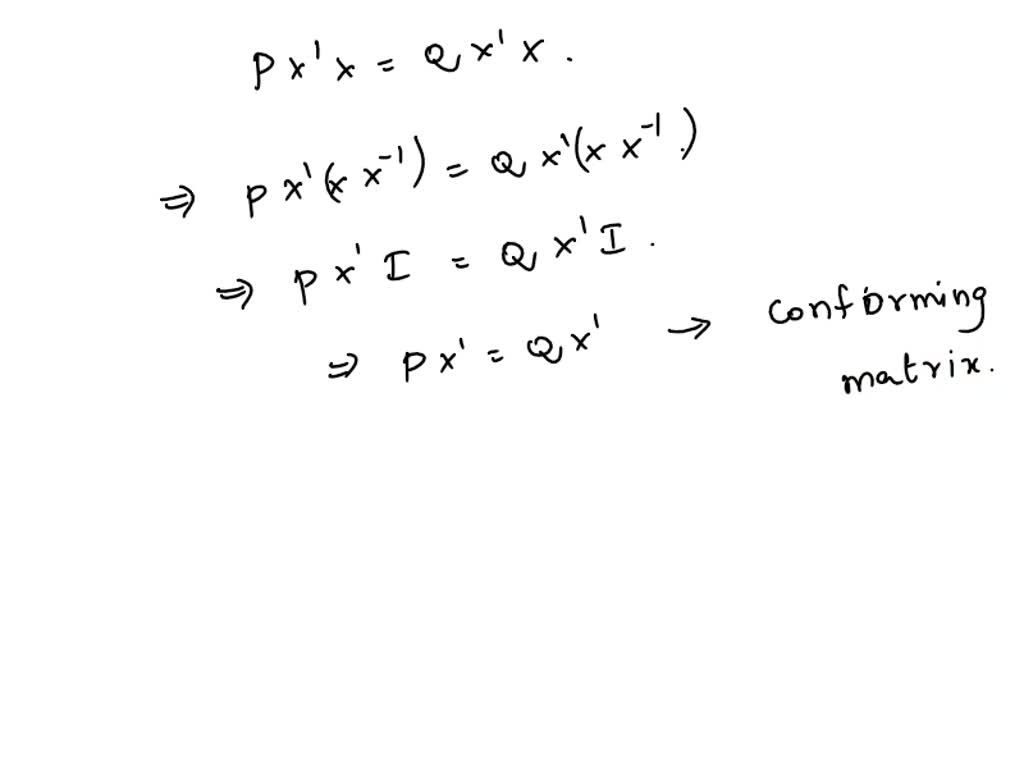 P x' x = Q x' x .
⇒ P x' (x x⁻¹) = Q x' (x x⁻¹)
⇒ P x' I = Q x' I .
⇒ P x' = Q x' → conforming
matrix.